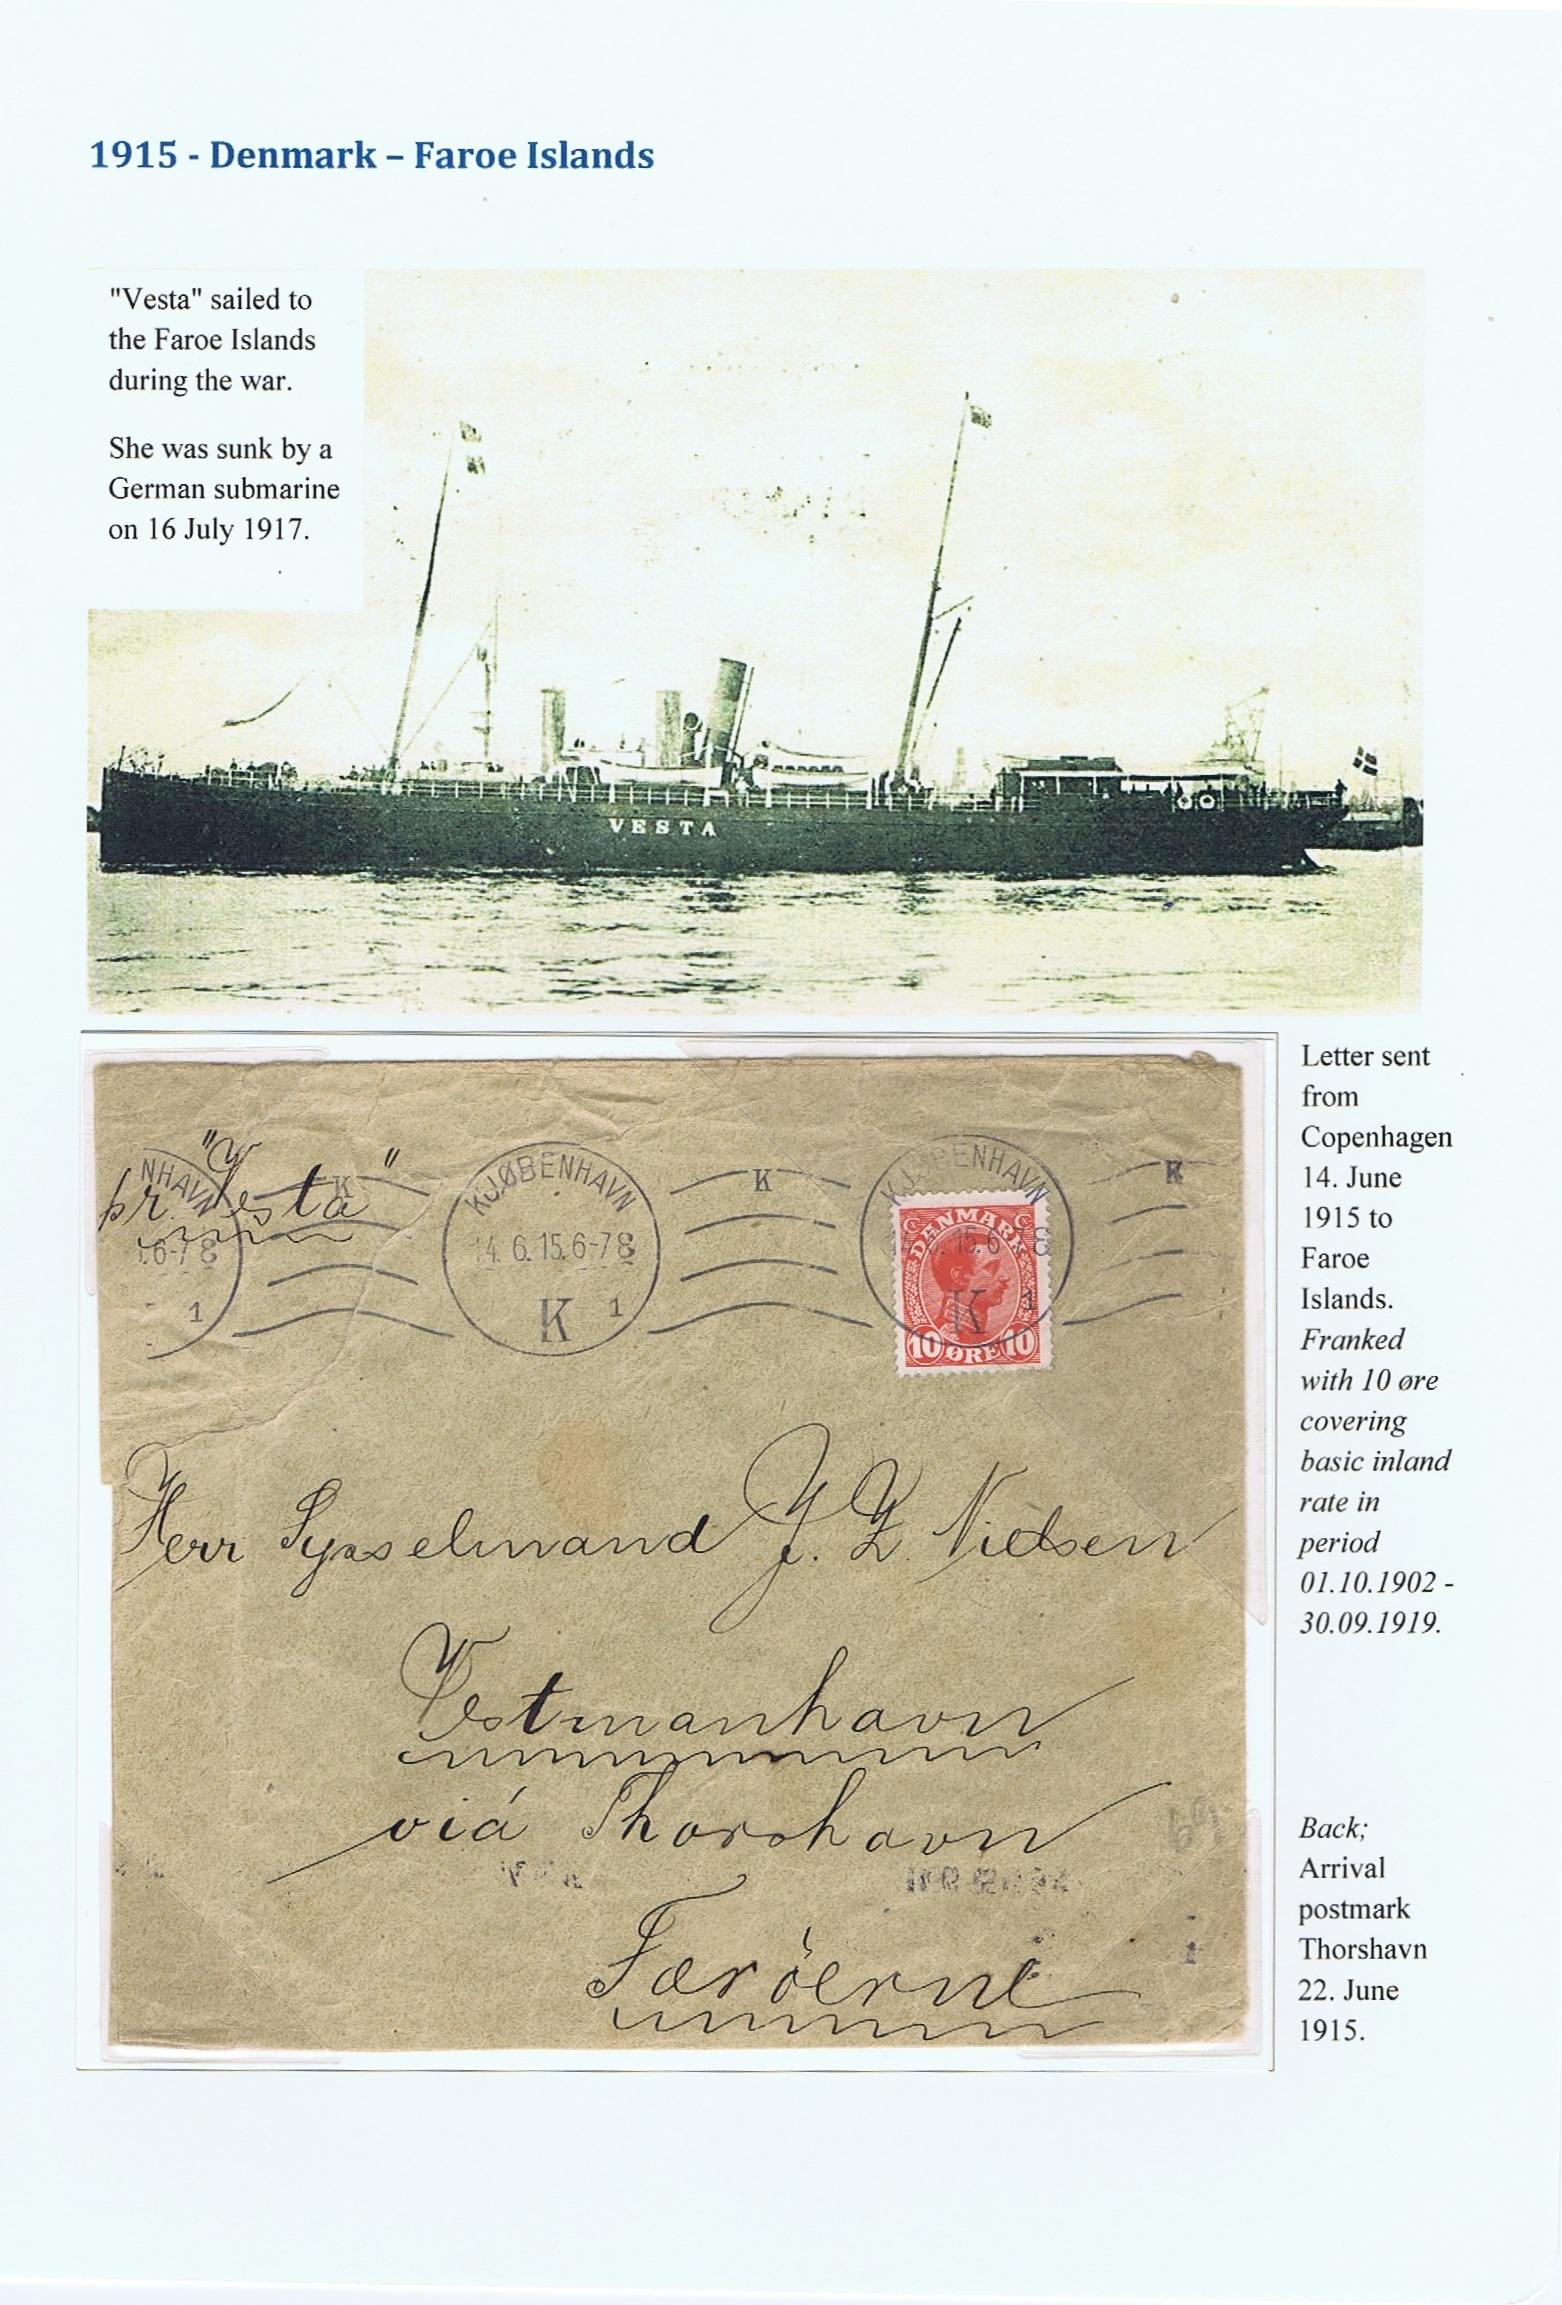 1915 - Denmark – Faroe Islands
"Vesta" sailed to
the Faroe Islands
during the war.
She was sunk by a
German submarine
on 16 July 1917.
VESTA
Letter sent
from
Copenhagen
14. June
1915 to
Faroe
Islands.
Franked
with 10 øre
covering
basic inland
rate in
period
01.10.1902 -
30.09.1919.
Back;
Arrival
postmark
Thorshavn
22. June
1915.
pr. "Vesta"
NHAVN
6-7 8
1
K
KJØBENHAVN
14. 6. 15. 6-7 8
K 1
K
KJØBENHAVN
15. 6-7 8
K 1
K
DANMARK
10 ØRE 10
Herr Sysselmand J. Z. Nielsen
Vestmanhavn
viá Thorshavn
Færöerne